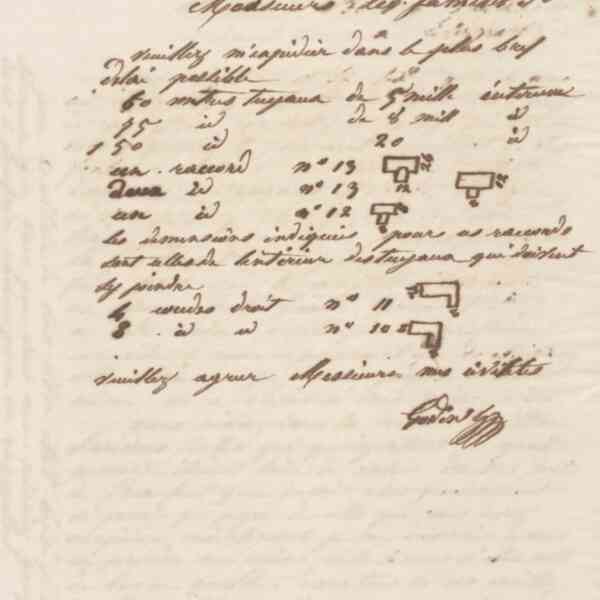 Messieurs
veuillez m'expédier dans le plus bref
délai possible
60 mètres tuyaux de 5 mill intérieur
75 id de 8 mill id
150 id 20 id
un raccord n° 13
deux id n° 13 12
un id n° 12
les dimensions indiquées pour ces raccords
sont celles de l'intérieur des tuyaux qui doivent
s'y joindre
4 coudes droit n° 11
8 id id n° 10
veuillez agréer Messieurs mes civilités
Godin